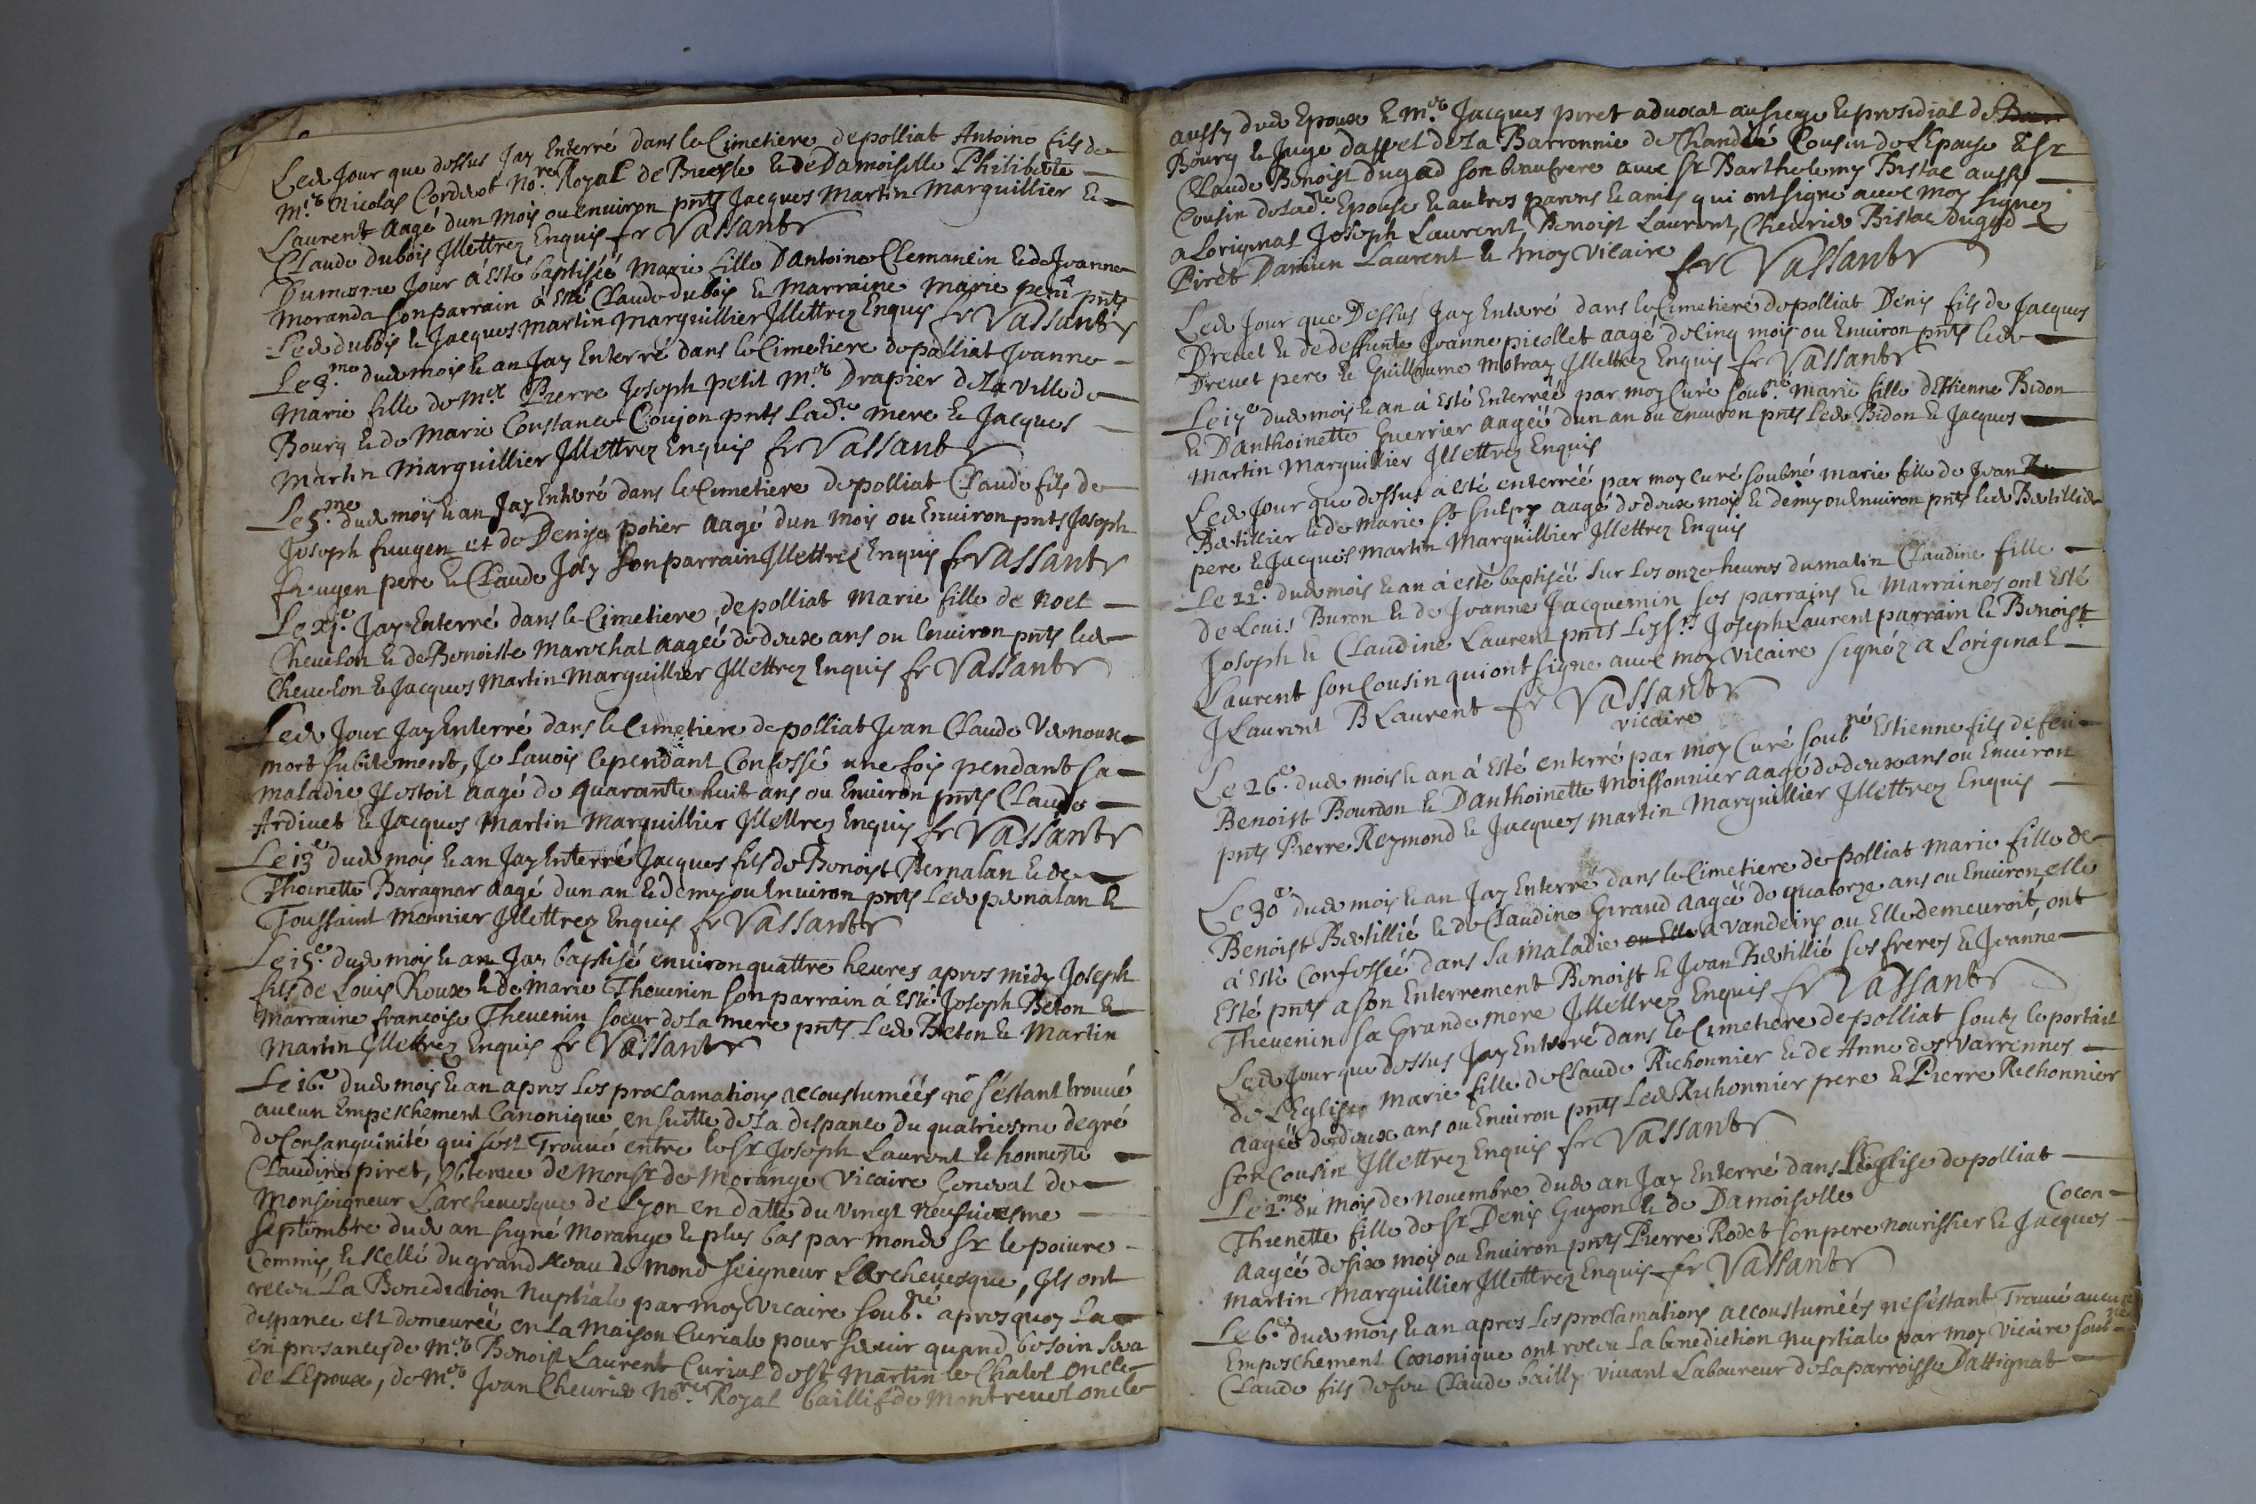 Led Jour que dessus Jay Enterré dans le Cimetiere de polliat Antoine fils de
M.re Nicolas Corderot No.re Royal de Bresse & de Damoiselle Philiberte
Laurent Aagé dun mois ou environ pnts Jacques Martin Marguillier &
Claude Dubois Jllettrez Enquis fr Vassant
Du mesme Jour à Esté baptiséé Marie fille D'Antoine Clemancin & de Jeanne
Moranda son parrain à Esté Claude dubois & Marraine Marie peni pnts
Led dubois & Jacques Martin Marguillier Jllettrez Enquis fr Vassant
Le 3.me dud mois & an Jay Enterré dans le Cimetiere de polliat Jeanne
Marie fille de M.re Pierre Joseph petit M.re Drapier de la ville de
Bourg & de Marie Constance Coujon pnts lad.te mere & Jacques
Martin Marguillier Jllettrez Enquis fr Vassant
Le 5.me dud mois & an Jay Enterré dans le Cimetiere de polliat Claude fils de
Joseph feugen et de Denise potier aagé dun mois ou Environ pnts Joseph
feugen pere & Claude Joly son parrain Jllettrez Enquis fr Vassant
Le xj.e Jay Enterré dans le Cimetiere de polliat Marie fille de noel
Cheuelon & de Benoiste Marechal aagéé de deux ans ou Environ pnts led
Cheuelon & Jacques Martin Marguillier Jllettrez Enquis fr Vassant
Led Jour Jay Enterré dans le Cimetiere de polliat Jean Claude Vernoux
mort subitement, Je Lauois cependant Confessé une fois pendant sa
maladie Jl estoit aagé de quarante huit ans ou Environ pnts Claude
Ardiuet & Jacques Martin Marguillier Jllettrez Enquis fr Vassant
Le 13.e dud mois & an Jay Enterré Jacques fils de Benoist Pernalan & de
Thoinette Baragnar aagé dun an & demy ou Environ pnts Led pernalan &
Toussaint Monnier Jllettrez Enquis fr Vassant
Le 15.e dud mois & an Jay baptisé environ quattre heures apres midy Joseph
fils de Louis Roux & de Marie Theuenin son parrain à Esté Joseph Beton &
Marraine francoise Theuenin soeur de la mere pnts Led Beton & Martin
Martin Jllettrez Enquis fr Vassant
Le 16.e dud mois & an apres Les proclamations accoustuméés ne s'éstant trouué
aucun Empeschement Canonique en suitte de La dispance du quatriesme degré
de Consanguinité qui s'est Trouue entre le Sr Joseph Laurent & honneste
Claudine piret, obtenue de Monsr de Morange Vicaire General de
Monseigneur Larcheuesque de Lyon en datte du vingt neufuiesme
Septembre dud an signé Morange & plus bas par mond Sr le poiure
Commis, & scellé du grand sceau de mond Seigneur Larcheuesque, Jls ont
receu La Benediction Nuptiale par moy Vicaire soub.né apres quoy La
dispance est demeuréé en La maison Curiale pour seruir quand besoin sera
en presances de M.re Benoist Laurent Curial de St Martin le Chatel oncle
de LEpoux, de M.re Jean Cheurier No.re Royal baillif de Montreuel oncle
aussy dud Epoux & M.re Jacques piret aduocat au siege & presidial de
Bourg & Juge d'appel de la Barronnie de Chandée Cousin de LEpouse & Sr
Claude Benoist Dugad son beaufrere auec Sr Bartholemy Bistac aussy
Cousin de lad.te Epouse & autres parens & amis qui ont signé auec moy signez
a Loriginal Joseph Laurent, Benoist Laurent, Cheurier Bistac dugad
Piret Damien Laurent & moy Vicaire fr Vassant
Led Jour que Dessus Jay Enterré dans le Cimetieré de polliat Denis fils de Jacques
Dreuet & de deffunte Jeanne picollet aagé de Cinq mois ou Environ pnts led
Dreuet pere & Guillaume Motray Jllettrez Enquis fr Vassant
Le 17.e dud mois & an à Esté Enterréé par moy Curé soub.né Marie fille dEstienne Bidon
& D'Anthoinette Guerrier aagéé dun an ou environ pnts Led Bidon & Jacques
Martin Marguillier Jllettrez Enquis
Led Jour que dessus à esté enterréé par moy curé soubné Marie fille de Jean
Bertillier & de Marie St Sulpy aagé de deux mois & demy ou Environ pnts led Bertillier
pere & Jacques Martin Marguillier Jllettrez Enquis
Le 22.e dud mois & an à esté baptiséé sur Les onze heures du matin Claudine fille
de Louis Buron & de Jeanne Jacquemin ses parrains & Marraines ont Esté
Joseph & Claudine Laurent pnts Les S.rs Joseph Laurent parrain & Benoist
Laurent son Cousin qui ont signe auec moy vicaire signéz a Loriginal
J Laurent B Laurent fr Vassant
vicaire
Le 26.e dud mois & an à Esté enterré par moy Curé soub né Estienne fils de feu
Benoist Bourdon & D'Anthoinette Moissonnier aagé de deux ans ou Environ
pnts Pierre Reymond & Jacques Martin Marguillier Jllettrez Enquis
Le 30.e dud mois & an Jay Enterré dans le Cimetiere de polliat Marie fille de
Benoist Bertillié & de Claudine Giraud aagéé de quatorze ans ou Environ elle
à Esté Confesséé dans sa Maladie ou Elle a vandeins ou Elle demeuroit, ont
Esté pnts a son Enterrement Benoist & Jean Bertillié ses freres & Jeanne
Theuenin sa Grande mere Jllettrez Enquis fr Vassant
Led Jour que dessus Jay Enterré dans le Cimetiere de polliat soubz le portail
de LEglise Marie fille de Claude Richonnier & de Anne des varrennes
aagéé de deux ans ou Environ pnts Led Richonnier pere & Pierre Richonnier
son Cousin Jllettrez Enquis fr Vassant
Le 2.me du mois de Nouembre dud an Jay Enterré dans L'église de polliat
Thienette fille de Sr Denis Guyon & de Damoiselle Cocon
aagéé de six mois ou Environ pnts Pierre Rodet son pere nourissier & Jacques
Martin Marguillier Jllettrez Enquis fr Vassant
Le 6.e dud mois & an apres Les proclamations accoustuméés ne s'éstant Trouué aucun
Empeschement Canonique ont receu La benediction Nuptiale par moy Vicaire soub né
Claude fils de feu Claude bailly viuant Laboureur de La parroisse D'attignat